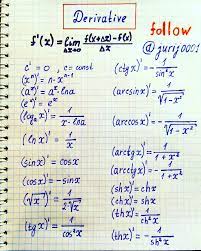 Derivative
follow
@jurij0001
f'(x) = lim Δx→0 (f(x+Δx)-f(x))/Δx
c' = 0, c = const
(xⁿ)' = n·xⁿ⁻¹
(aˣ)' = aˣ·lna
(eˣ)' = eˣ
(logₐx)' = 1/(x·lna)
(lnx)' = 1/x
(sinx)' = cosx
(cosx)' = -sinx
(√x)' = 1/(2·√x)
(tgx)' = 1/cos²x
(ctgx)' = -1/sin²x
(arcsinx)' = 1/√(1-x²)
(arccosx)' = -1/√(1-x²)
(arctgx)' = 1/(1+x²)
(arcctgx)' = -1/(1+x²)
(shx)' = chx
(chx)' = shx
(thx)' = 1/ch²x